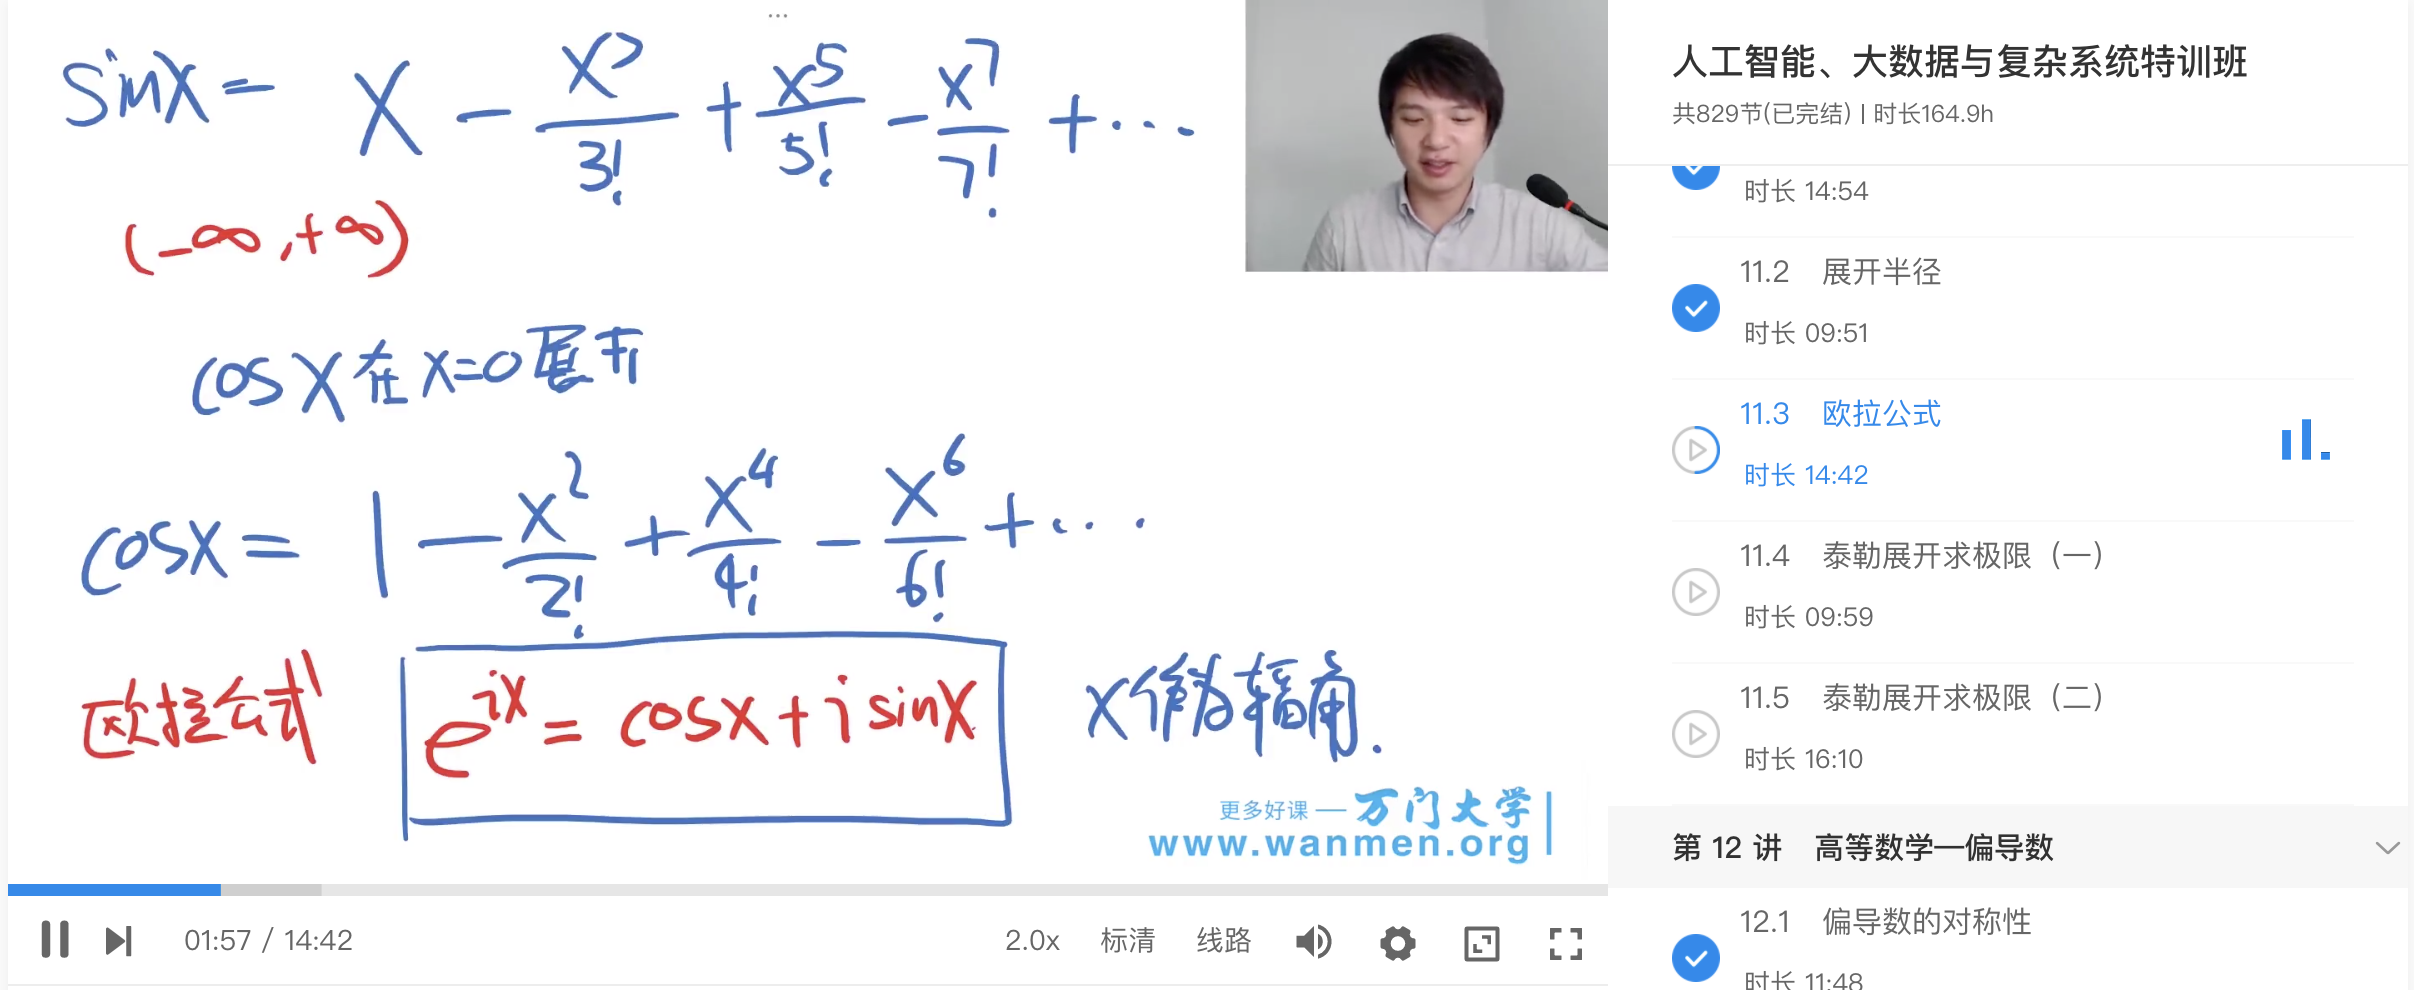 sinx = x - x³/3! + x⁵/5! - x⁷/7! + ⋯
(-∞,+∞)
cosx在x=0展开
cosx = 1 - x²/2! + x⁴/4! - x⁶/6! + ⋯
欧拉公式 e^{ix} = cosx + i sinx x作为辐角.
更多好课 — 万门大学
www.wanmen.org
01:57 / 14:42 2.0x 标清 线路
人工智能、大数据与复杂系统特训班
共829节(已完结) | 时长164.9h
时长 14:54
11.2 展开半径
时长 09:51
11.3 欧拉公式
时长 14:42
11.4 泰勒展开求极限（一）
时长 09:59
11.5 泰勒展开求极限（二）
时长 16:10
第 12 讲 高等数学—偏导数
12.1 偏导数的对称性
时长 11:48